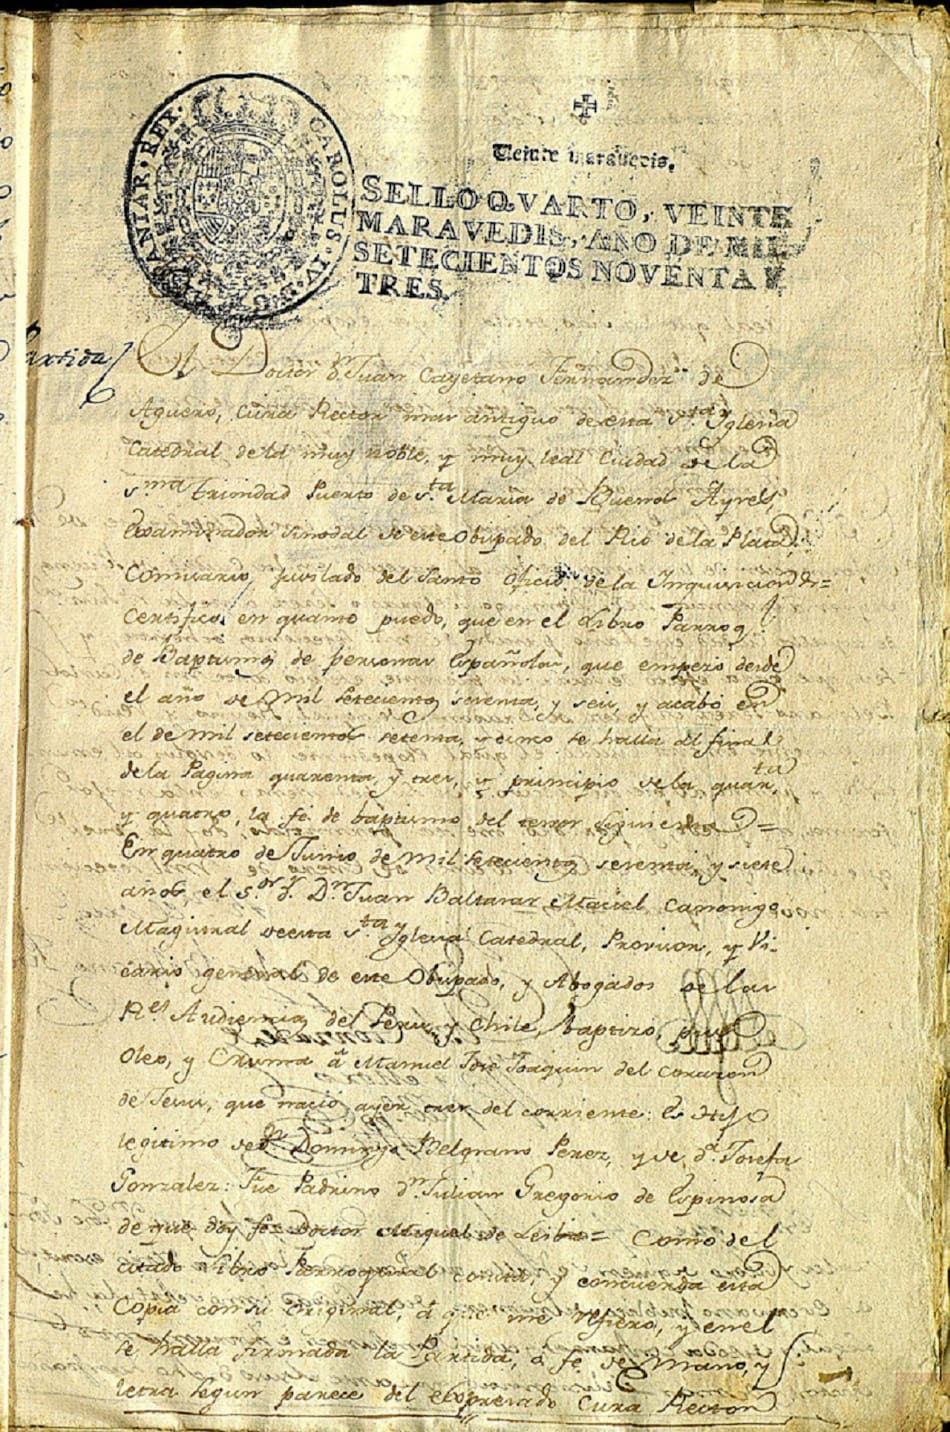 CAROLUS IV D G
ANIAR REX
Veinte maravedis.
SELLO QVARTO, VEINTE
MARAVEDIS, AÑO DE MIL
SETECIENTOS NOVENTA Y
TRES.
Partida
El Doctor Dn Juan Cayetano Fernandez de
Aguero, Cura Rector mas antiguo de esta Sta Yglesia
Catedral de la muy noble, y muy leal Ciudad de la
Sma Trinidad Puerto de Sta Maria de Buenos Ayres,
Examinador Sinodal de este Obispado del Rio de la Plata,
Comisario, jubilado del Santo Oficio de la Inquisicion &=
Certifico en quanto puedo, que en el Libro Parroq
de Baptismos de personas Españolas, que empezo desde
el año de mil setecientos setenta, y seis, y acabó en
el de mil setecientos setenta, se halla al final
de la Pagina quarenta, y tres, y principio de la quarta
y quatro, la fe de baptismo del tenor siguiente=
En quatro de Junio de mil setecientos setenta, y siete
años el Sor Dr Dn Juan Baltasar Maciel Canonigo
Magistral de esta Sta Yglesia Catedral, Provisor, y Vi-
cario general de este Obispado, y Abogados de las
Rs Audiencias del Peru, y Chile, baptizo, puso
Oleo, y Crisma á Manuel Jose Joaquin del corazon
de Jesus, que nació ayer tres del corriente: es Hijo
legitimo de Dn Domingo Belgrano Perez, y de Da Josefa
Gonzalez: Fue Padrino Dn Julian Gregorio de Espinosa
de que doy fe= Doctor Miguel de Leiba= Como del
citado Libro Parroquial consta, y concuerda esta
Copia con su original, á que me refiero, y en el
se halla firmada la Partida, o fe de Mano, y
letra segun parece del expresado Cura Rector